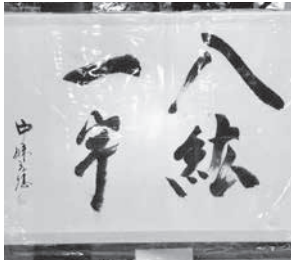 八紘
一宇